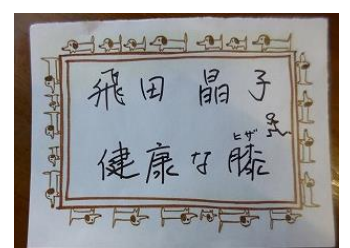 飛田 晶子
健康な膝
ヒザ